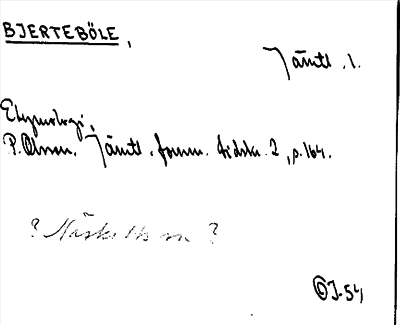 BJERTEBÖLE,
Jämtl. l.
Etymologi,
P. Olsson. Jämtl. fornm. tidskr. 2, p. 164.
? ?
J-54